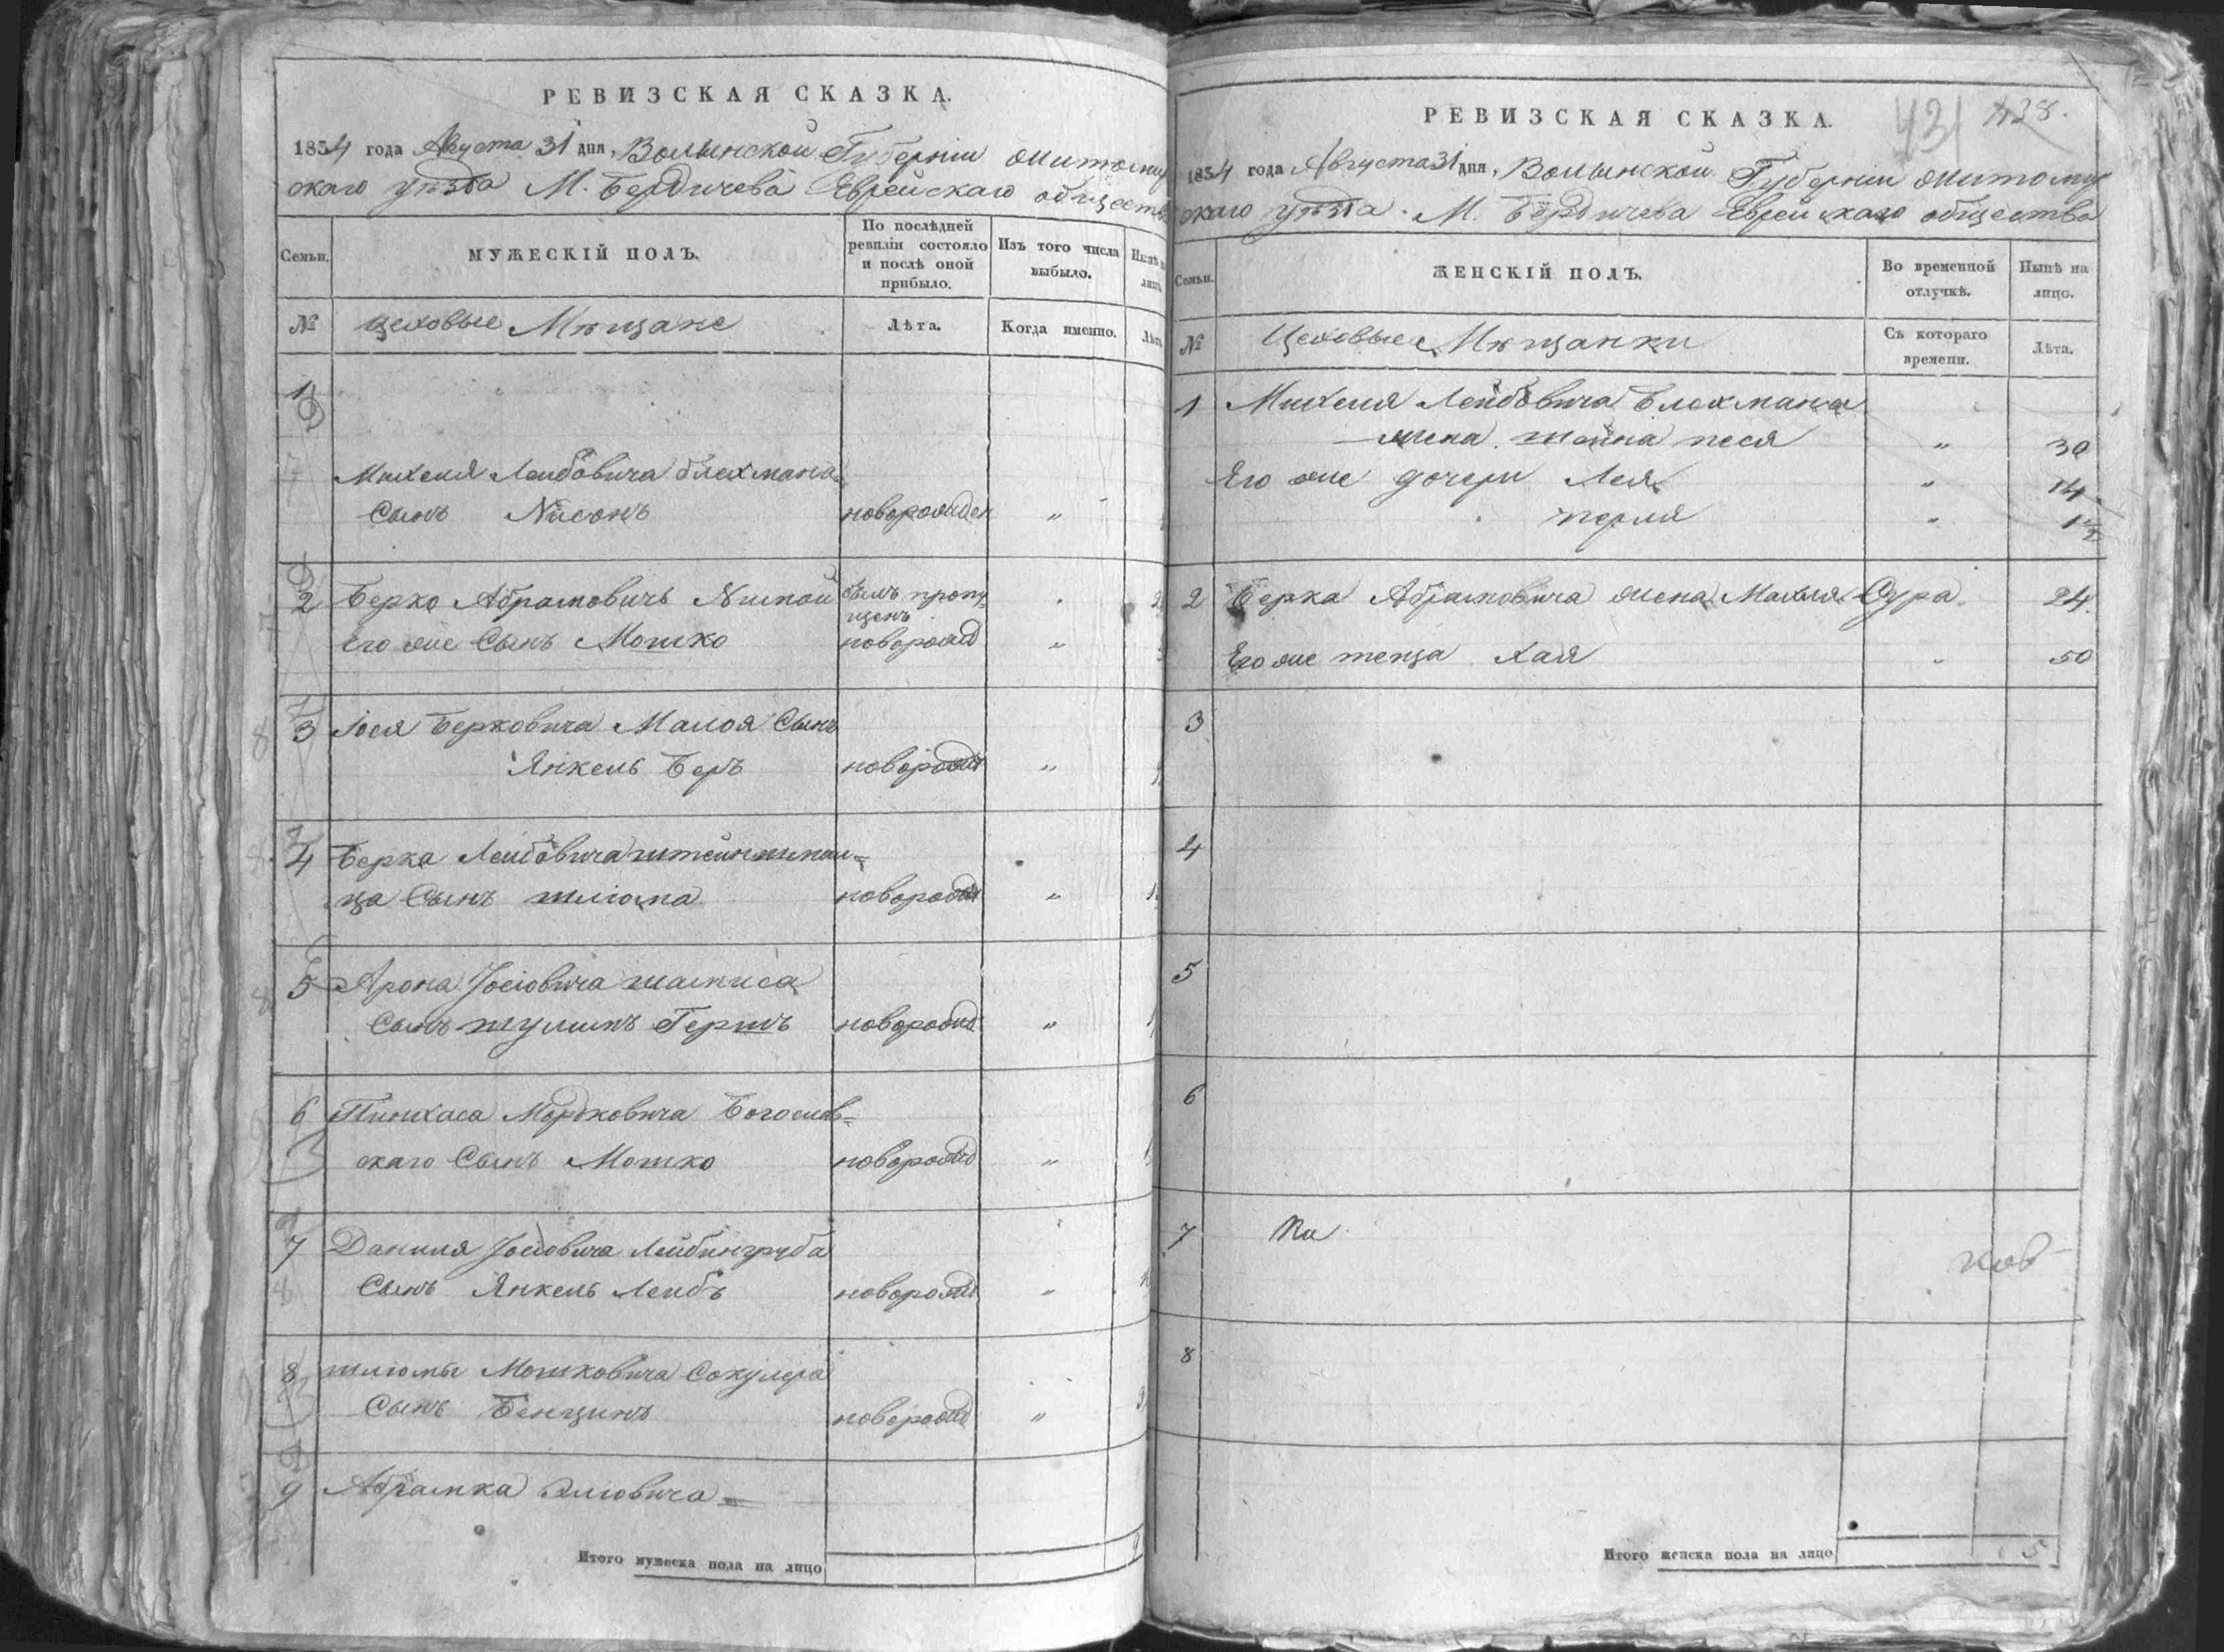 РЕВИЗСКАЯ СКАЗКА.
1854 года Августа 31 дня, Волынской Губерніи Житомир
скаго уѣзда М. Бердичева Еврейскаго обществ
Семьи.
МУЖЕСКІЙ ПОЛЪ.
По послѣдней ревизіи состояло и послѣ оной прибыло.
Изъ того числа выбыло.
Нынѣ
№
Цеховые Мѣщане
Лѣта.
Когда именно.
Лѣта
1
Михеля Лейбовича Блехмана
Сынъ Нисонъ новорожден "
2 Берко Абрамовичъ был пропу
щенъ
Его же Сынъ Мошко новорожд "
3 Іося Берковича Малоя Сынъ
Янкель Беръ новорожд "
4 Берка Лейбовича
ца Сынъ Шліома новорожд "
5 Арона Іосіовича
Сынъ Шулимъ Гершъ новорожд "
6 Пинхаса Мордковича Богослав=
скаго Сынъ Мошко новорожд "
7 Даниля Іосіовича Лейбингруба
Сынъ Янкель Лейбъ новорожд "
8 Шліомы Мошковича Сокулера
Сынъ Бенцинъ новорожд "
9 Абрамка Эліовича =
Итого мужеска пола на лицо
РЕВИЗСКАЯ СКАЗКА.
431 438.
1854 года Августа 31 дня, Волынской Губерніи Житомир
скаго уѣзда. М. Бердичева Еврейскаго общества
Семьи.
ЖЕНСКІЙ ПОЛЪ.
Во временной отлучкѣ.
Нынѣ на лицо.
№
Цеховые Мѣщанки
Съ котораго времени.
Лѣта.
1 Михеля Лейбовича Блехмана
жена Шейна Песя " 30
Его же дочери Лея " 14
Перля " 1½
2 Берка Абрамовича жена Махля Сура. 24.
Его же теща Хая " 50
3
4
5
6
7
8
Итого женска пола на лицо 5